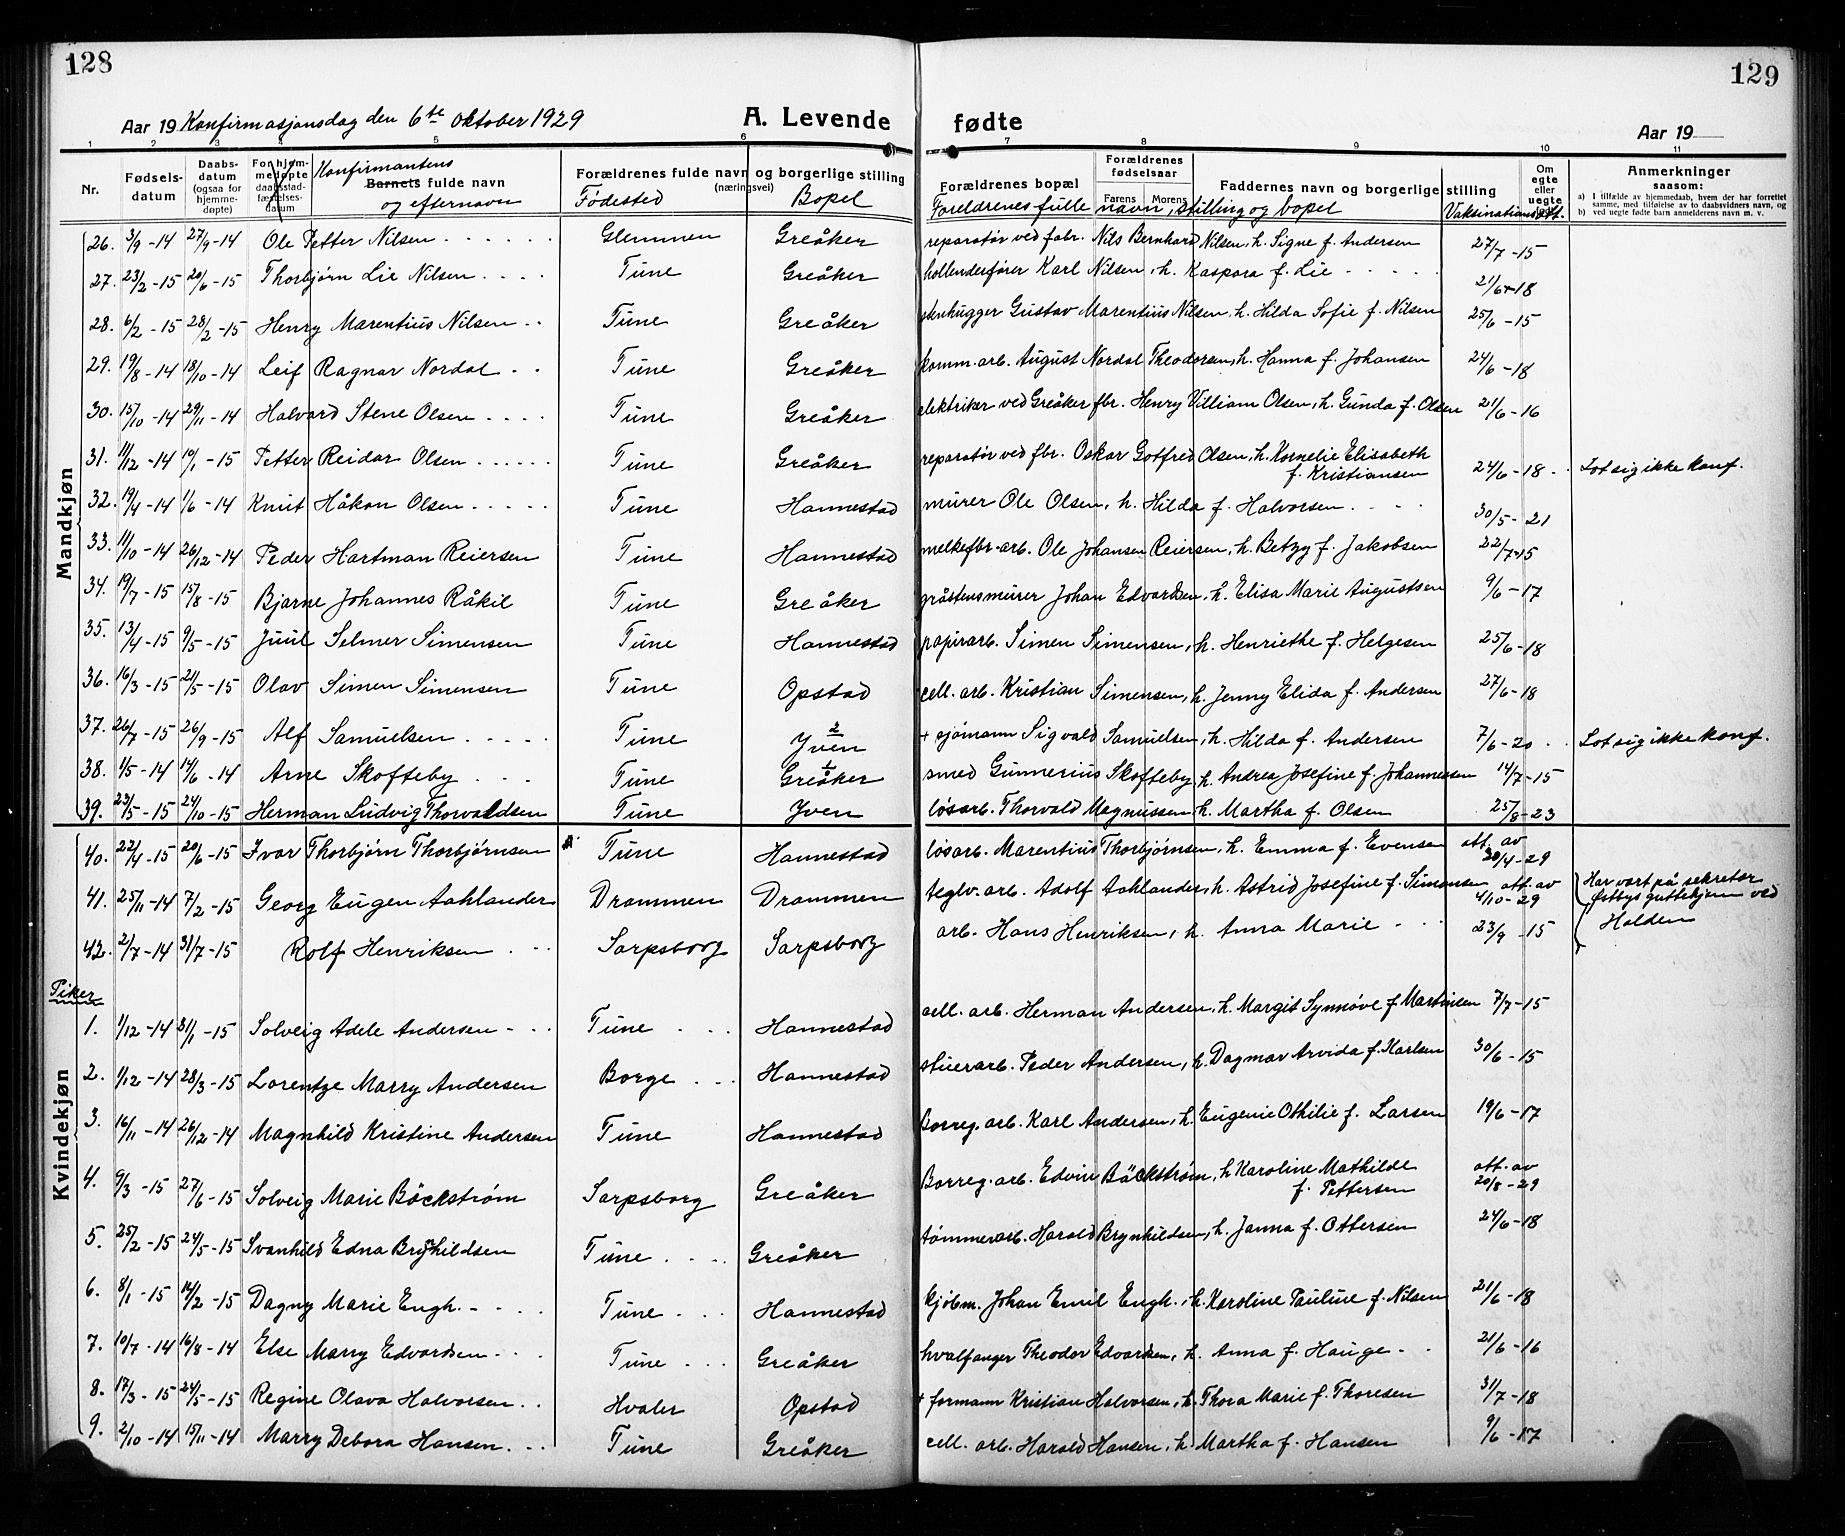 128
129
Aar 19 Konfirmasjonsdag den 6te oktober 1929
A. Levende fødte
Aar 19
1 2 3 4 5 6 7 8 9 10 11
Nr.
Fødsels-datum
Daabs-datum (ogsaa for hjemme-døpte)
For hjem-medøpte daabsstad-fæstelses-datum
Konfirmantens
Barnets fulde navn
og efternavn
Forældrenes fulde navn og borgerlige stilling
(næringsvei)
Fødested
Bopel
Forældrenes bopæl
Forældrenes fødselsaar
Farens Morens
Faddernes navn og borgerlige stilling
Foreldrenes fulle navn, stilling og bopel
Vaksinationsatt.
Om egte eller uegte
Anmerkninger
saasom:
a) I tilfælde av hjemmedaab, hvem der har forrettet samme, med tilføielse av to daabsvidners navn, og
b) ved uegte fødte barn anmelderens navn m. v.
Mandkjøn
26. 3/9-14 27/9-14 Ole Petter Nilsen Glemmen Greåker reparatør ved fabr. Nils Bernhard Nilsen, h. Signe f. Andersen 27/7-15
27. 23/2-15 20/6-15 Thorbjørn Lie Nilsen Tune Greåker hollenderfører Karl Nilsen, h. Kaspara f. Lie 21/6-18
28. 6/2-15 28/2-15 Henry Marentius Nilsen Tune Greåker stenhugger Gustav Marentius Nilsen, h. Hilda Sofie f. Nilsen 25/6-15
29. 19/8-14 18/10-14 Leif Ragnar Nordal Tune Greåker komm. arb. August Nordal Theodorsen, h. Hanna f. Johansen 24/6-18
30. 15/10-14 29/11-14 Halvard Stene Olsen Tune Greåker elektriker ved Greåker fbr. Henry Villiam Olsen, h. Gunda f. Olsen 21/6-16
31. 11/12-14 10/1-15 Petter Reidar Olsen Tune Greåker reparatør ved fbr. Oskar Gotfred Olsen, h. Kornelie Elisabeth
f. Kristiansen 24/6-18 Lot sig ikke konf.
32. 19/4-14 1/6-14 Knut Håkon Olsen Tune Hannestad murer Ole Olsen, h. Hilda f. Halvorsen 30/5-21
33. 11/10-14 26/12-14 Peder Hartman Reiersen Tune Hannestad melkefbr-arb. Ole Johansen Reiersen, h. Betzy f. Jakobsen 22/7-15
34. 19/7-15 15/8-15 Bjarne Johannes Råkil Tune Greåker gråstensmurer Johan Edvardsen, h. Elisa Marie Augustsen 9/6-17
35. 13/4-15 9/5-15 Juul Selmer Simensen Tune Hannestad papirarb. Simen Simensen, h. Henriethe f. Helgesen 25/6-18
36. 16/3-15 21/5-15 Olav Simen Simensen Tune Opstad cell. arb. Kristian Simensen, h. Jenny Elida f. Andersen 27/6-18
37. 26/7-15 26/9-15 Alf Samuelsen Tune Yven + sjømann Sigvald Samuelsen, h. Hilda f. Andersen 7/6-20 Lot sig ikke konf.
38. 1/5-14 14/6-14 Arne Skofteby Tune Greåker smed Gunnerius Skofteby, h. Andrea Josefine f. Johannessen 14/7-15
39. 23/5-15 24/10-15 Herman Ludvig Thorvaldsen Tune Yven løsarb. Thorvald Magnussen h. Martha f. Olsen 25/8-23
40. 22/4-15 20/6-15 Ivar Thorbjørn Thorbjørnsen Tune Hannestad løsarb. Marentius Thorbjørnsen, h. Emma f. Evensen att. av 30/4-29
41. 25/11-14 7/2-15 Georg Eugen Aahlander Drammen Drammen teglv. arb. Adolf Aahlander, h. Astrid Josefine f. Simonsen att. av 4/10-29 Har vært på sekretær
Ørbys guttehjem ved
Halden
42. 2/7-14 31/7-15 Rolf Henriksen Sarpsborg Sarpsborg arb. Hans Henriksen, h. Anna Marie 23/9-15
Piker
Kvindekjøn
1. 1/12-14 31/1-15 Solveig Adele Andersen Tune Hannestad cell. arb. Herman Andersen, h. Margit Synnøve f. Martinsen 7/7-15
2. 1/12-14 28/3-15 Lorentze Marry Andersen Borge Hannestad stuerarb. Peder Andersen, h. Dagmar Arvida f. Karlsen 30/6-15
3. 16/11-14 26/12-14 Magnhild Kristine Andersen Tune Hannestad Borreg. arb. Karl Andersen, h. Eugenie Othilie f. Larsen 19/6-17
4. 9/3-15 27/6-15 Solveig Marie Bäckstrøm Sarpsborg Greåker Borreg. arb. Edvin Bäckstrøm, h Karoline Mathilde
f. Pettersen att. av 20/8-29
5. 25/2-15 24/5-15 Svanhild Edna Brynhildsen Tune Greåker tømmerarb. Harald Brynhildsen, h. Janna f. Ottersen 24/6-18
6. 8/1-15 14/2-15 Dagny Marie Engh. Tune Hannestad kjøbm. Johan Emil Engh., h. Karoline Pauline f. Nilsen 21/6-18
7. 10/7-14 16/8-14 Else Marry Edvardsen Tune Greåker hvalfanger Theodor Edvardsen, h. Anna f. Hauge 21/6-16
8. 17/3-15 24/5-15 Regine Olava Halvorsen Hvaler Opstad + formann Kristian Halvorsen, h. Thora Marie f. Thoresen 31/7-18
9. 2/10-14 15/11-14 Marry Debora Hansen Tune Greåker cell. arb. Harald Hansen, h. Martha f. Hansen 9/6-17